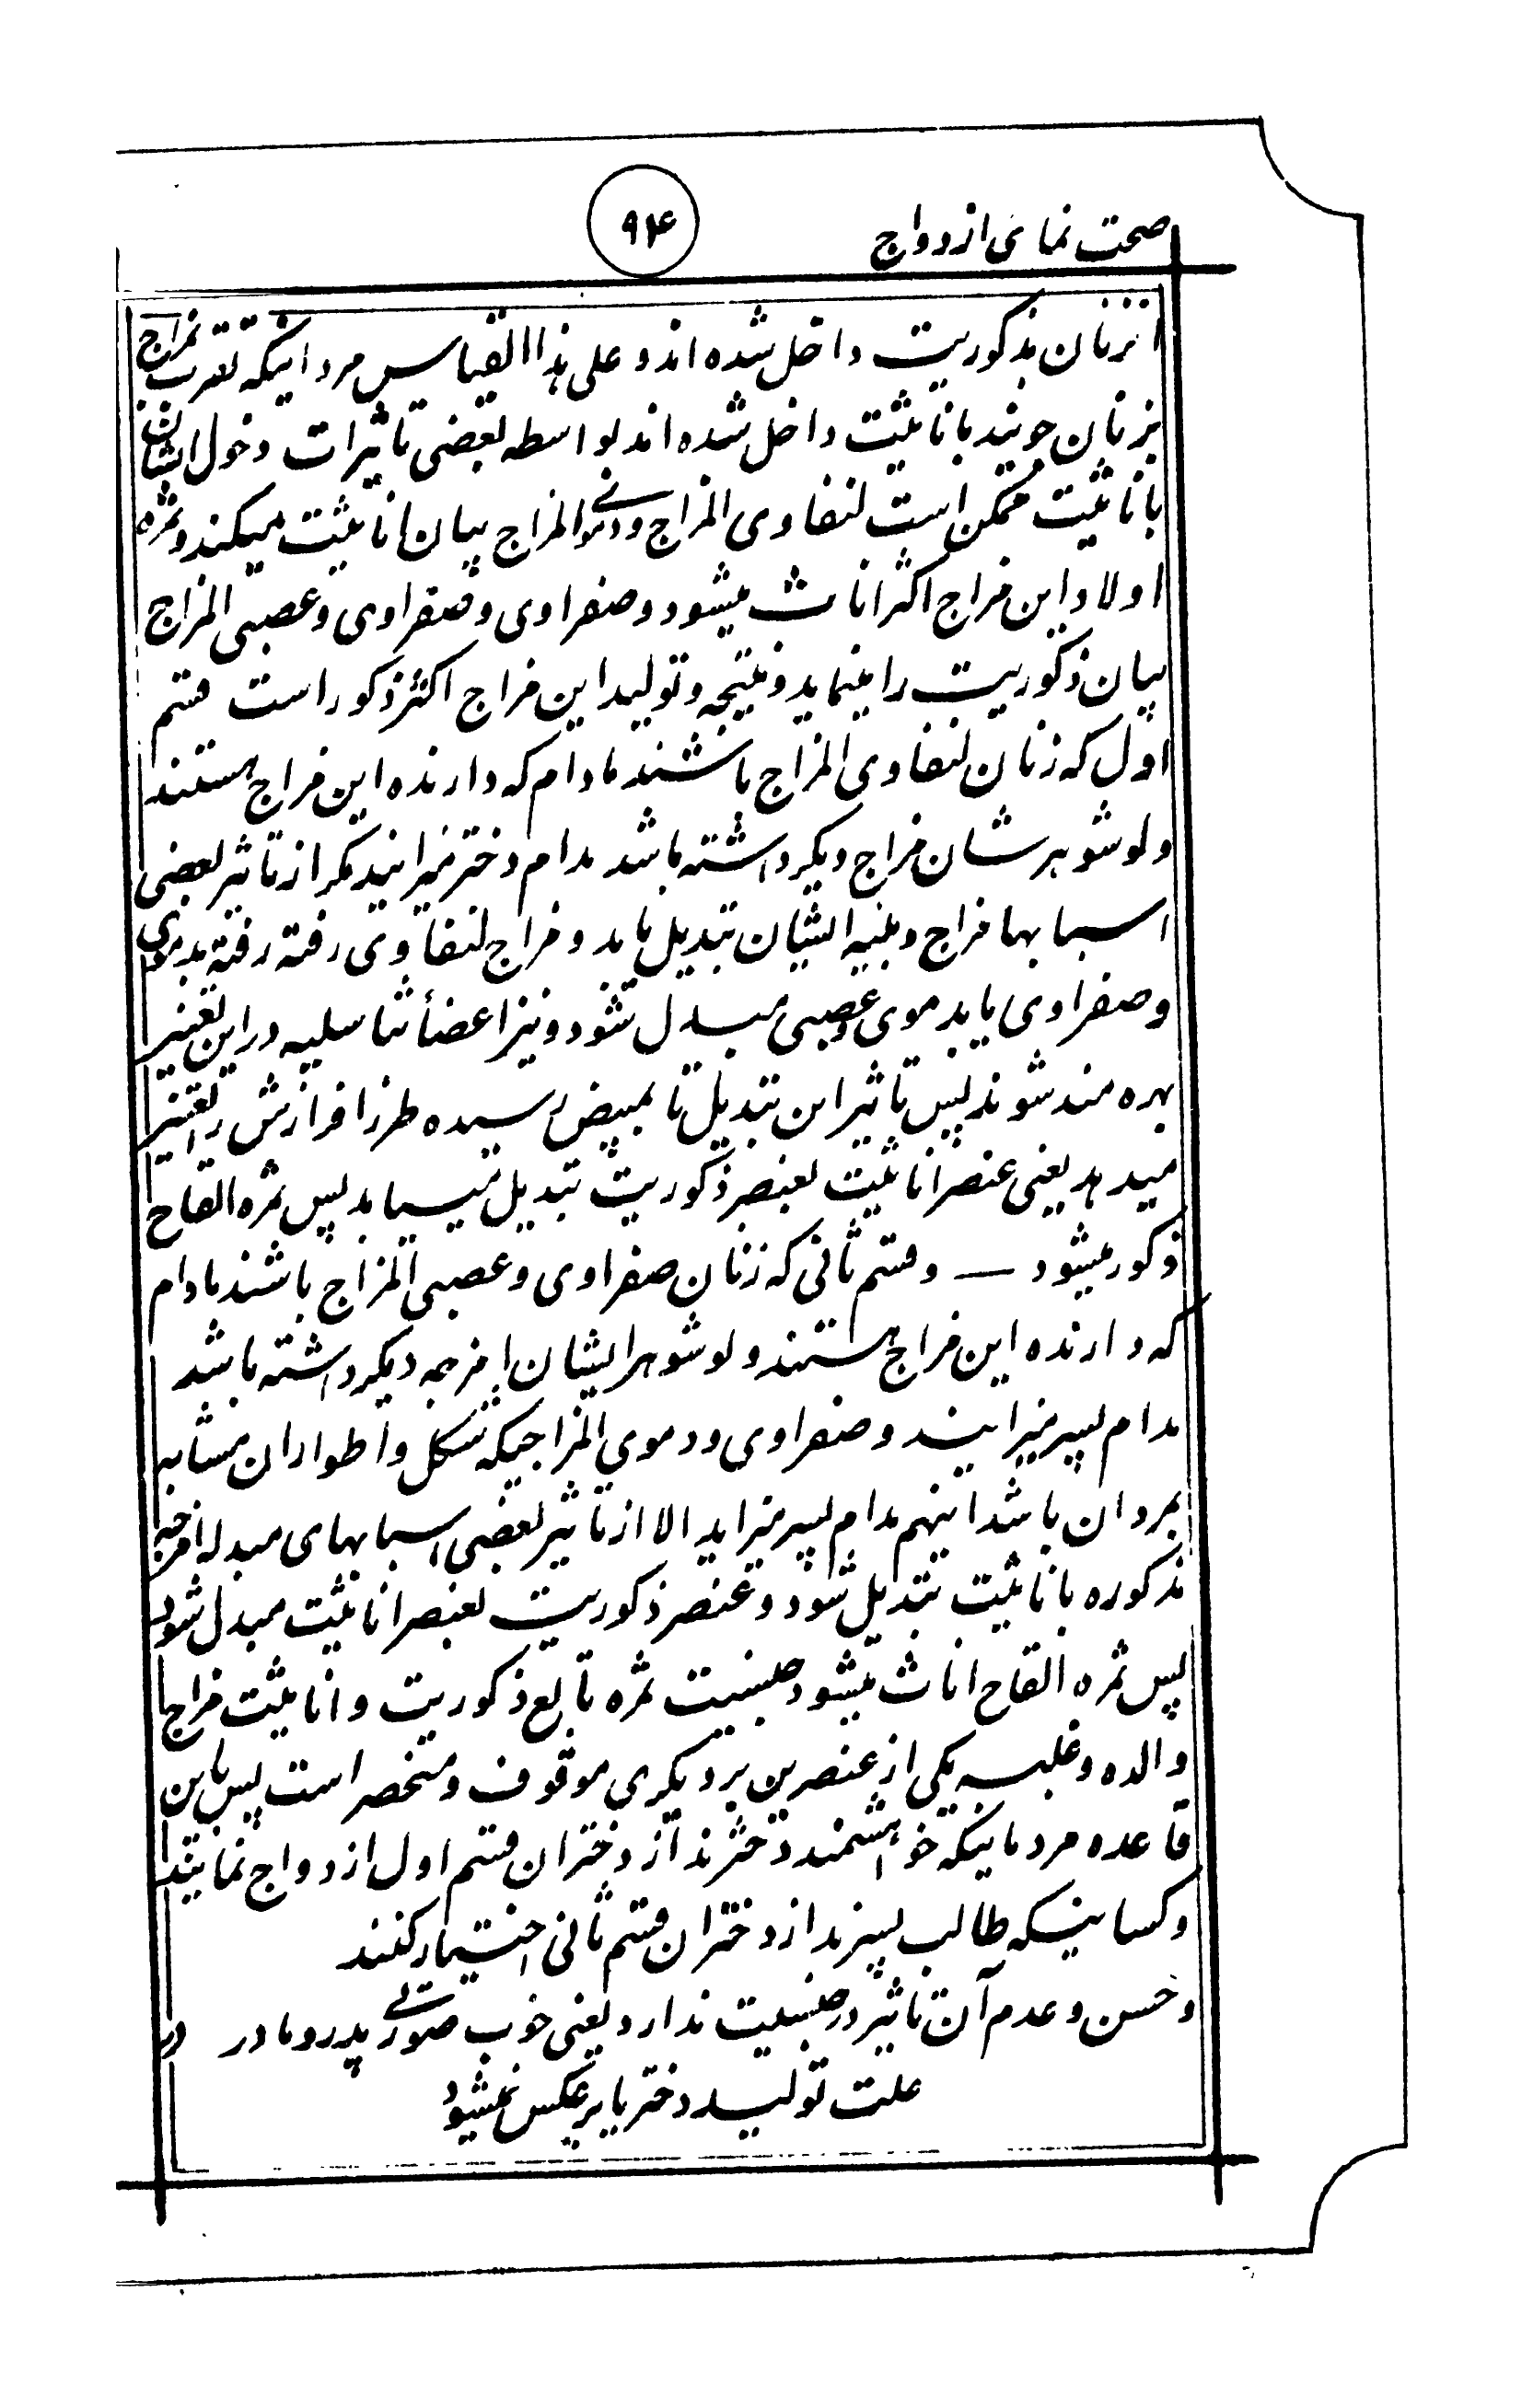 صحت نمای ازدواج
۹۴
اینزنان بذکوریت داخل شده اند و علی هذا القیاس مردانیکه تقرب بمزاج
بزنان جویند بانانثیت داخل شده اند بواسطه بعضی تاثیرات دخول ایشان
بانانثیت ممکن است لنفاوی المزاج و دموی المزاج بیان انانثیت میکند و ثمره
اولاد این مزاج اکثر اناث میشود و صفراوی و صفراوی و عصبی المزاج
بیان ذکوریت را مینماید و نتیجه و تولید این مزاج اکثر ذکور است قسم
اول که زنان لنفاوی المزاج باشند مادام که دارنده این مزاج هستند
ولو شوهرشان مزاج دیگر داشته باشد مدام دختر میزایند مگر از تاثیر بعضی
اسبابها مزاج و بنیه ایشان تبدیل یابد و مزاج لنفاوی رفته رفته بدموی
و صفراوی یا بدموی عصبی مبدل شود و نیز اعضأ تناسلیه در این تغییر
بهره مند شوند پس تاثیر این تبدیل تا بمبیض رسیده طرز افرازش را تغییر
میدهد یعنی عنصر انانثیت بعنصر ذکوریت تبدیل مییابد پس ثمره القاح
ذکور میشود — و قسم ثانی که زنان صفراوی و عصبی المزاج باشند مادام
که دارنده این مزاج هستند ولو شوهر ایشان امزجه دیگر داشته باشد
مدام پسر میزایند و صفراوی و دموی المزاجیکه شکل و اطوار ان مشابه
بمردان باشد اینهم مدام پسر میزاید الا از تاثیر بعضی اسبابهای مبدله امزجه
مذکوره بانانثیت تبدیل شود و عنصر ذکوریت بعنصر انانثیت مبدل شود
پس ثمره القاح اناث میشود جنسیت ثمره تابع ذکوریت و انانثیت مزاج
والده و غلبه یکی از عنصرین بر دیگری موقوف و منحصر است پس باین
قاعده مردمانیکه خواهشمند دخترند از دختران قسم اول ازدواج نمایند
و کسانیکه طالب پسرند از دختران قسم ثانی اختیار کنند
و حسن و عدم آن تاثیر در جنسیت ندارد یعنی خوب صورتی پدر و مادر در
علت تولید دختر یا برعکس نمیشود